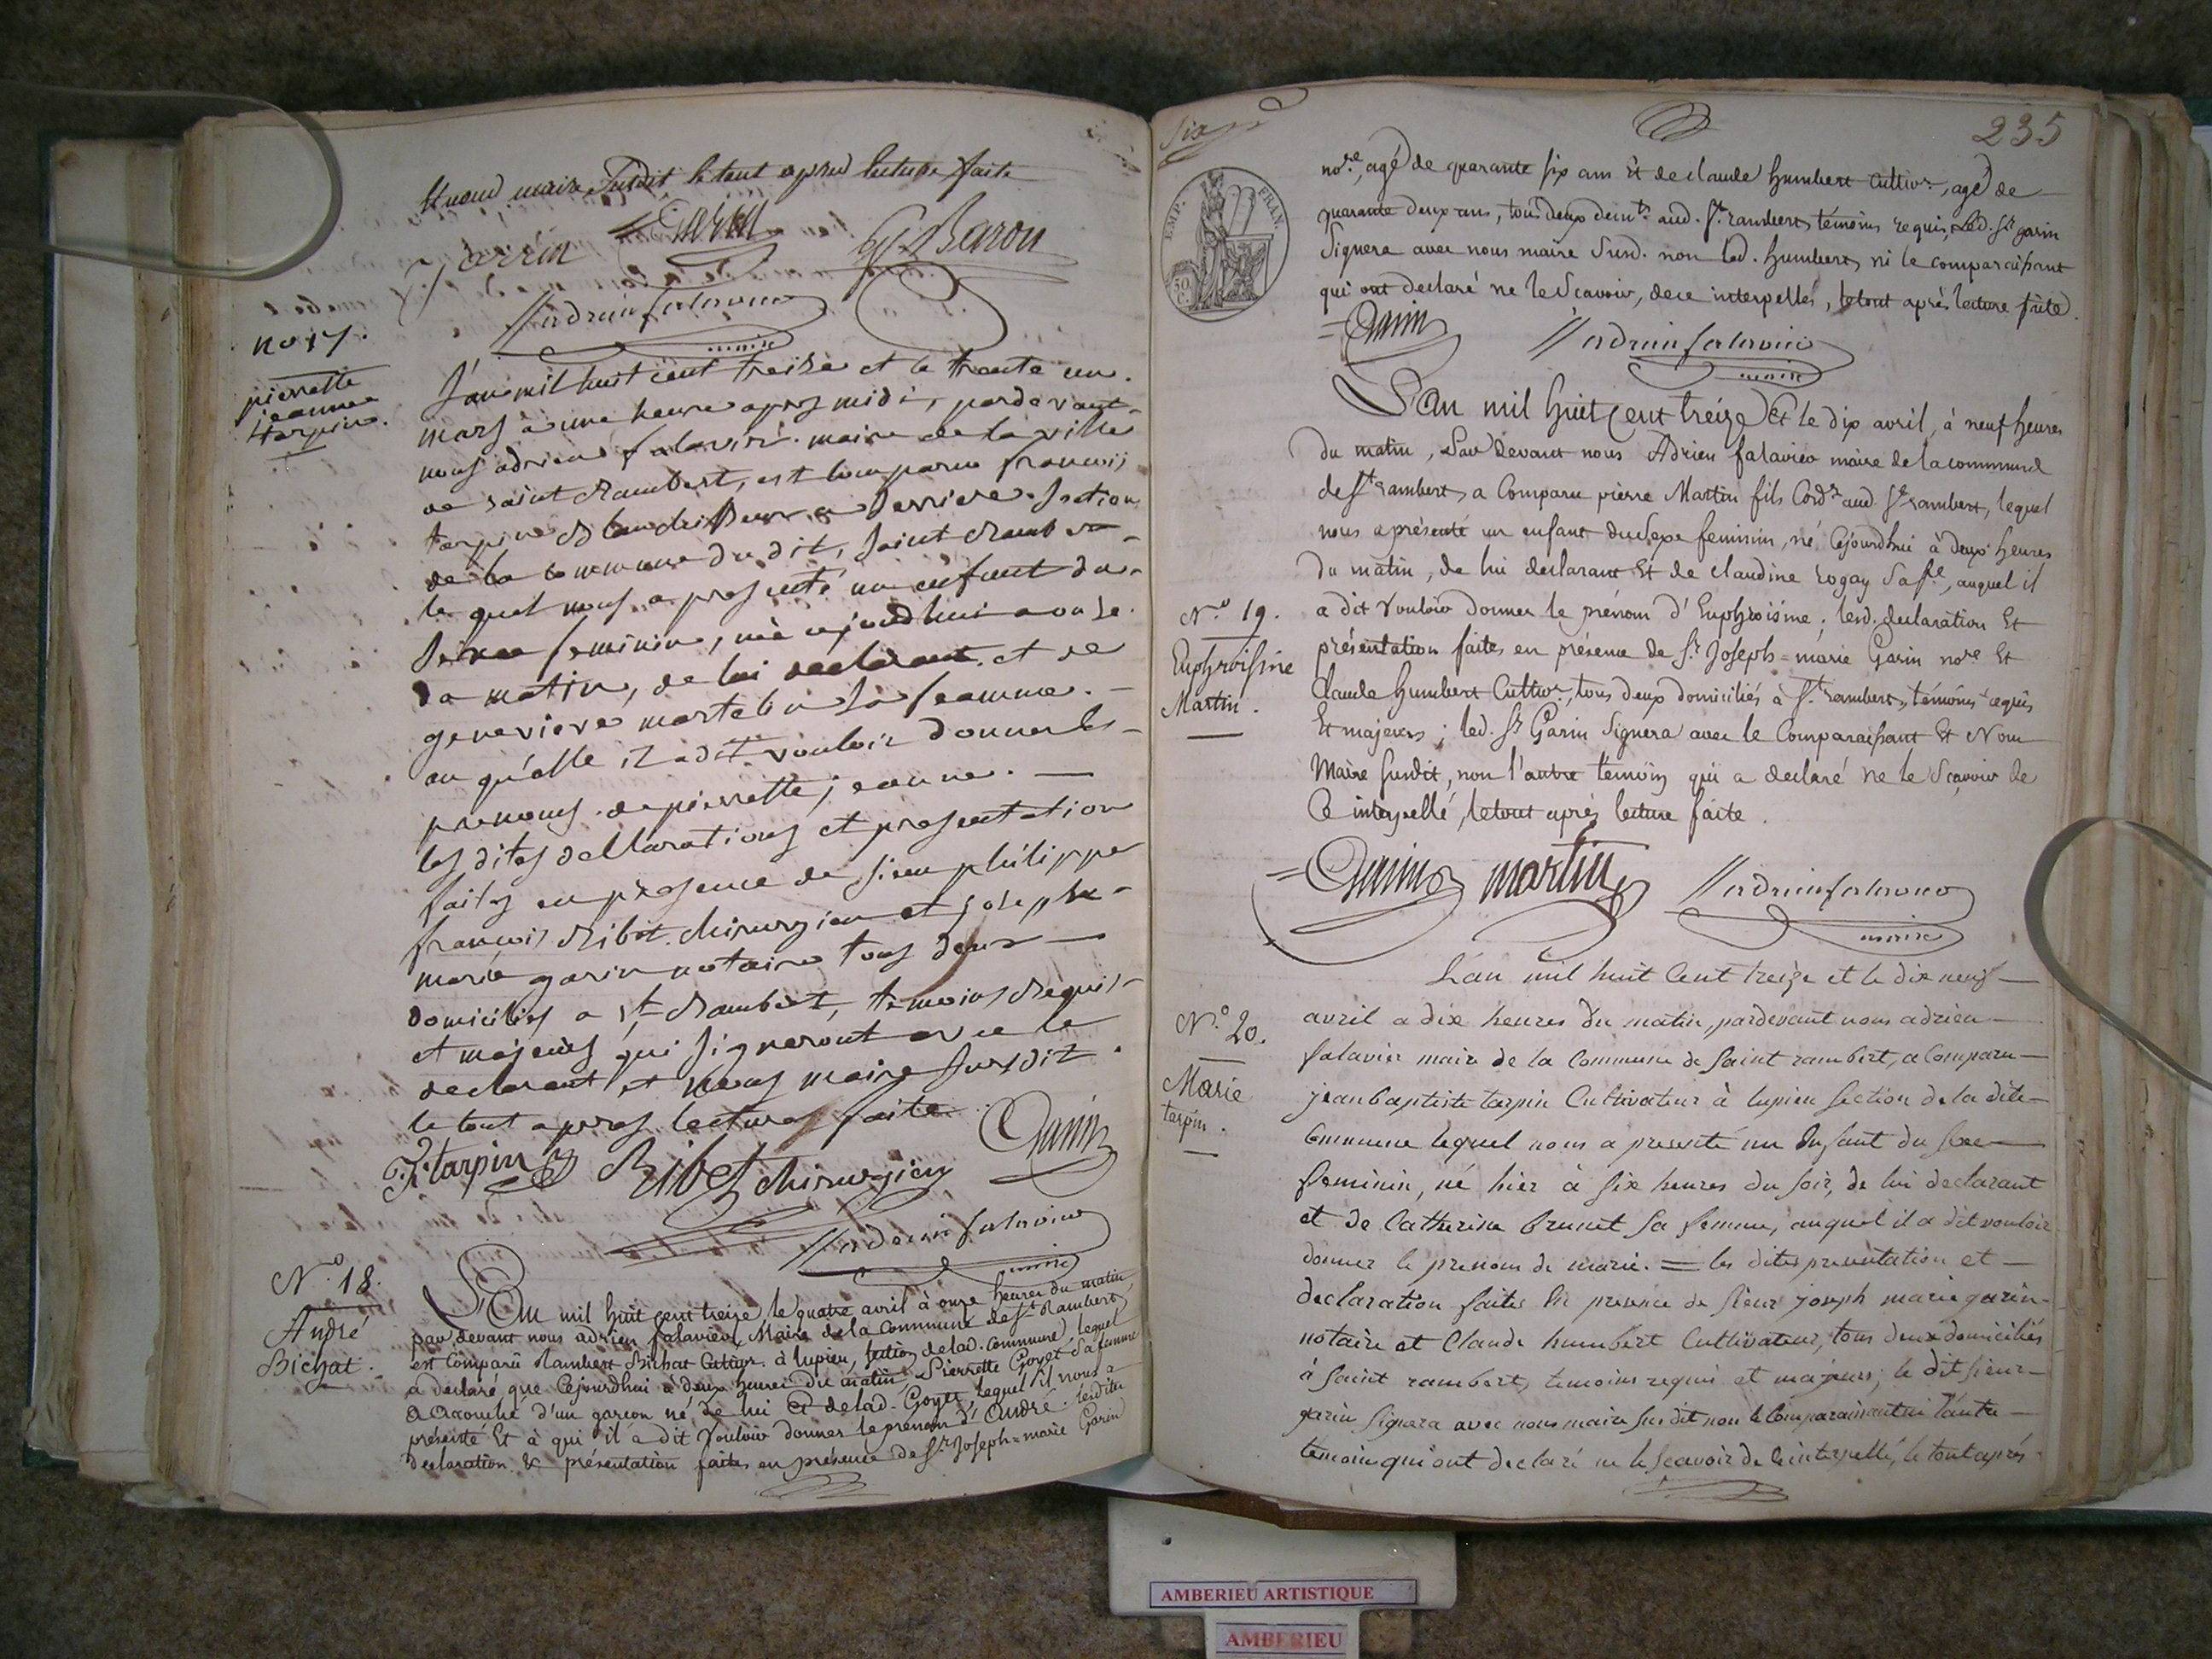 Et nous maire Susdit le tout après lecture faite
Garin
J Baron
adrien falavier
maire
no 17.
pierrette
jeanne
tarpin.
L'an mil huit cent treize et le trante un.
mars à une heure apres midi, pardevant
nous adrien falavier maire de la ville
de saint Rambert, est comparu francois
tarpin Blanchisseur a Serriere Section
de la commune du dit, saint Rambert
le quel nous a presenté un enfant du
sexe feminin, née ajourdhui a onze
du matin, de lui declarant et de
genevieve martelin Sa feamme.
au qu'elle il a dit vouloir donner les
prenoms de pierrette jeanne.
les dites declarations et presentation
faites en presence de sieur philippe
francois Ribet chirurgien et joseph
marie garin notaire tous deux
domiciliés a St Rambert, temoins Requis
et majeurs qui signeront avec le
declarant et nous maire susdit.
le tout apres lecture faite
F. tarpin Ribet chirurgien Garin
adrien falavier
maire
N.o 18.
André
Bichat.
L'an mil huit cent treize le quatre avril à onze heures du matin,
par devant nous adrien falavier, Maire de la Commune de St Rambert
est Comparu Rambert Bichat Cultivr. à lupieu, section de lad. commune, lequel
a declaré que Cejourdhui à deux heures du matin, Pierrette Goyet Sa femme
a accouché d'un garcon né de lui Et de lad. Goyet, lequel il nous a
présenté Et à qui il a dit Vouloir donner le prénom d'André. lesdites
declaration & présentation faites en présence de Sr Joseph=marie Garin
Six
235
EMP. FRAN.
50 C.
nore, agé de quarante six ans Et de claude Humbert Cultivr., agé de
quarante deux ans, tous deux demts. aud. St. rambert, témoins requis, Led. Sr garin
Signera avec nous maire Susd. non led. Humbert, ni le comparaissant
qui ont declaré ne le Scavoir, de ce interpellés, le tout après lecture faite.
Garin
adrien falavier
maire
L'an mil Huit Cent treize Et le dix avril, à neuf heures
du matin, Par devant nous Adrien falavier maire de la commune
de St rambert, a Comparu pierre Martin fils Cordr aud. St rambert, lequel
nous a présenté un enfant du Sexe feminin, né Cejourdhui à deux heures
du matin, de lui declarant Et de claudine rogay Sa fe, auquel il
N.o 19.
a dit Vouloir donner le prénom d'Euphroisine; lesd. declaration Et
Euphroisine
Martin.
présentation faites en présence de Sr Joseph=marie Garin nore Et
Claude Humbert Cultivr., tous deux domiciliés à St. rambert, témoins requis
Et majeurs; led. Sr Garin Signera avec le Comparaissant Et Nous
Maire susdit, non l'autre témoin qui a declaré ne le Scavoir de
Ce interpellé, le tout après lecture faite.
Garin martin adrien falavier
maire
L'an mil huit Cent treize et le dix neuf
N.o 20.
Marie
tarpin.
avril a dix heures du matin, pardevant nous adrien
falavier maire de la Commune de Saint rambert, a Comparu
jean baptiste tarpin Cultivateur à lupieu Section de la dite
Commune lequel nous a presenté un Enfant du sexe
feminin, né hier à six heures du soir, de lui declarant
et de Catherine brunet sa femme, auquel il a dit vouloir
donner le prenom de marie. = les dites presentation et
declaration faites En presence de sieur joseph marie garin
notaire et Claude humbert Cultivateur, tous deux domiciliés
à Saint rambert, temoins requis et majeurs; le dit sieur
garin signera avec nous maire sus dit non le Comparaissant ni l'autre
temoin qui ont declaré ne le scavoir de ce interpellé, le tout après
AMBERIEU ARTISTIQUE
AMBERIEU